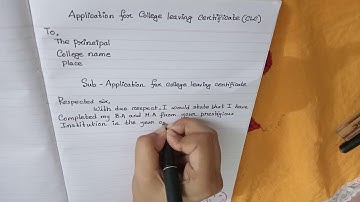 Application for College leaving Certificate (CLC)
To,
The principal
College name
place
Sub - Application for college leaving certificate
Respected sir,
With due respect, I would state that I have
Completed my B.A and M.A from your prestigious
Institution in the year